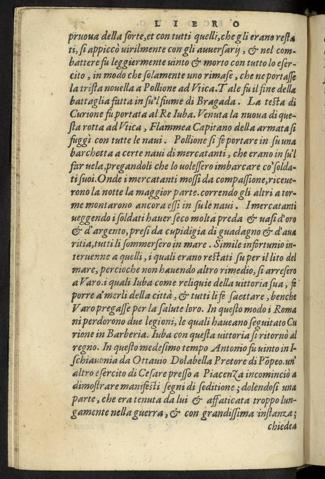 LIBRO
pruoua della sorte, et con tutti quelli, che gli erano resta
ti, si appiccò uirilmente con gli auuersarij, & nel com-
battere fu leggiermente uinto & morto con tutto lo eser-
cito, in modo che solamente uno rimase, che ne portasse
la trista nouella a Pollione ad Vtica. Tale fu il fine della
battaglia fatta in su'l fiume di Bragada. La testa di
Curione fu portata al Re Iuba. Venuta la nuoua di que-
sta rotta ad Vtica, Flammea Capitano della armata si
fuggì con tutte le naui. Pollione si fe portare in su una
barchetta a certe naui di mercatanti, che erano in su'l
far uela, pregandoli che lo uolessero imbarcare co' solda-
ti suoi. Onde i mercatanti mossi da compassione, riceue-
rono la notte la maggior parte. correndo gli altri a tor-
me montarono ancora essi in su le naui. I mercatanti
ueggendo i soldati hauer seco molta preda & uasi d'oro
& d'argento, presi da cupidigia di guadagno & d'aua
ritia, tutti li sommersero in mare. Simile infortunio in-
teruenne a quelli, i quali erano restati su per il lito del
mare, percioche non hauendo altro rimedio, si arresero
a Varo. i quali Iuba come reliquie della uittoria sua, fe
porre a' merli della città, & tutti li fe saettare, benche
Varo pregasse per la salute loro. In questo modo i Roma
ni perderono due legioni, le quali haueano seguitato Cu
rione in Barberia. Iuba con questa uittoria si ritornò al
regno. In questo medesimo tempo Antonio fu uinto in I-
schiauonia da Ottauio Dolabella Pretore di Pōpeo. un'
altro esercito di Cesare presso a Piacenza incominciò a
dimostrare manifesti segni di seditione; dolendosi una
parte, che era tenuta da lui & affaticata troppo lun-
gamente nella guerra, & con grandissima instanza;
chiedea